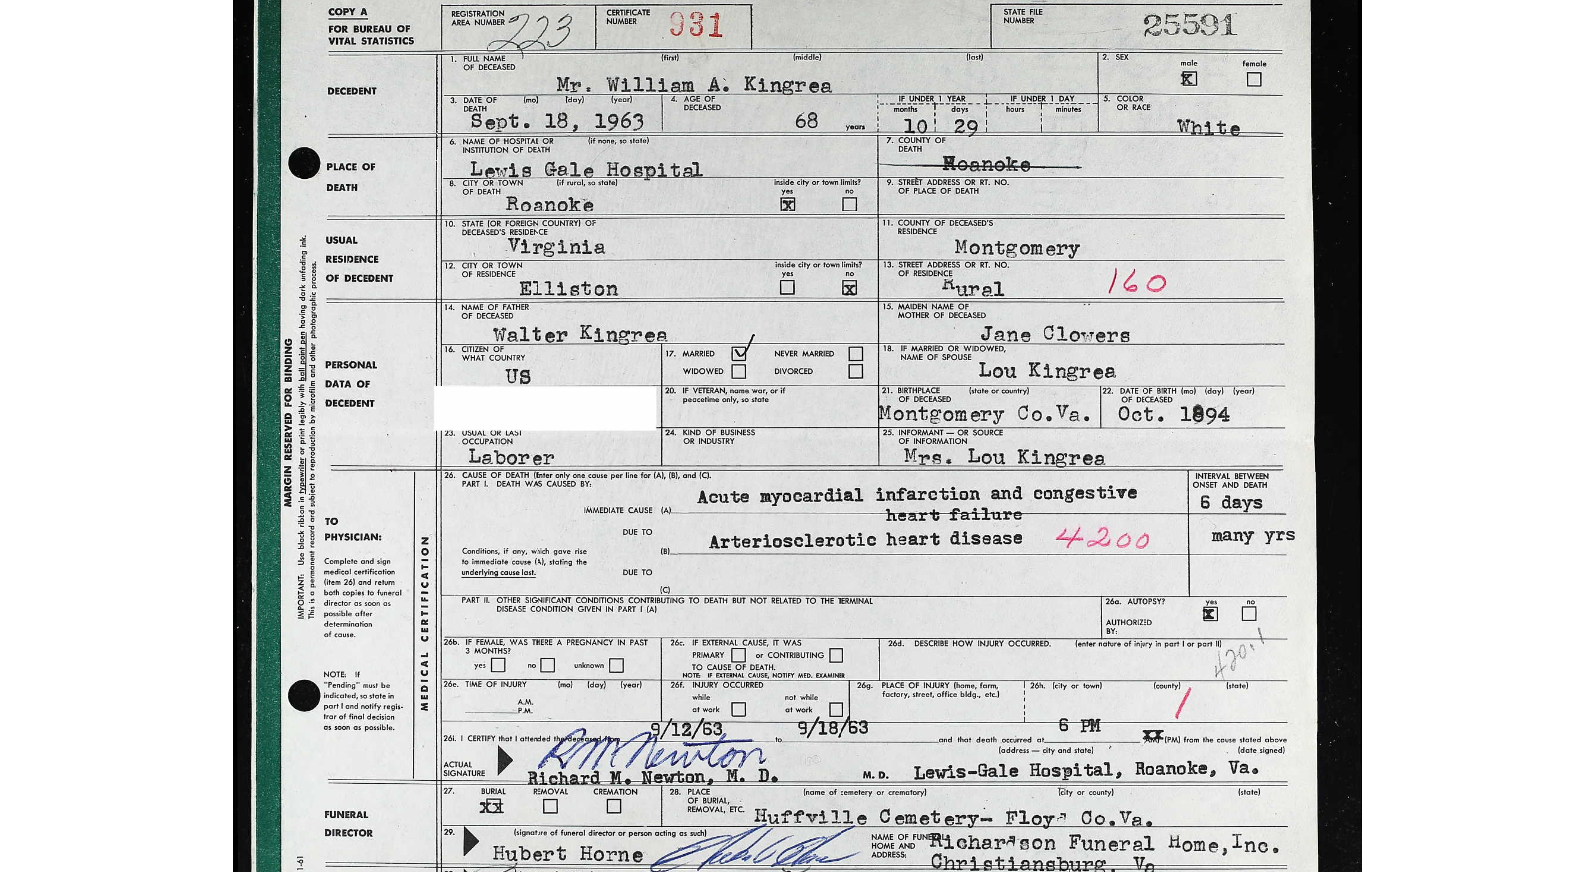 COPY A
FOR BUREAU OF
VITAL STATISTICS
REGISTRATION
AREA NUMBER 223
CERTIFICATE
NUMBER 931
STATE FILE
NUMBER 25591
DECEDENT
1. FULL NAME (first) (middle) (last)
OF DECEASED
Mr. William A. Kingrea
2. SEX male female
X
3. DATE OF (mo) (day) (year)
DEATH
Sept. 18, 1963
4. AGE OF
DECEASED
68 years
IF UNDER 1 YEAR IF UNDER 1 DAY
months days hours minutes
10 29
5. COLOR
OR RACE
White
PLACE OF
DEATH
6. NAME OF HOSPITAL OR (if none, so state)
INSTITUTION OF DEATH
Lewis Gale Hospital
7. COUNTY OF
DEATH
Roanoke
8. CITY OR TOWN (if rural, so state) inside city or town limits?
OF DEATH yes no
Roanoke X
9. STREET ADDRESS OR RT. NO.
OF PLACE OF DEATH
USUAL
RESIDENCE
OF DECEDENT
10. STATE (OR FOREIGN COUNTRY) OF
DECEASED'S RESIDENCE
Virginia
11. COUNTY OF DECEASED'S
RESIDENCE
Montgomery
12. CITY OR TOWN inside city or town limits?
OF RESIDENCE yes no
Elliston X
13. STREET ADDRESS OR RT. NO.
OF RESIDENCE
Rural 160
PERSONAL
DATA OF
DECEDENT
14. NAME OF FATHER
OF DECEASED
Walter Kingrea
15. MAIDEN NAME OF
MOTHER OF DECEASED
Jane Clowers
16. CITIZEN OF
WHAT COUNTRY
US
17. MARRIED NEVER MARRIED
WIDOWED DIVORCED
18. IF MARRIED OR WIDOWED,
NAME OF SPOUSE
Lou Kingrea
20. IF VETERAN, name war, or if
peacetime only, so state
21. BIRTHPLACE (state or country)
OF DECEASED
Montgomery Co.Va.
22. DATE OF BIRTH (mo) (day) (year)
OF DECEASED
Oct. 1894
23. USUAL OR LAST
OCCUPATION
Laborer
24. KIND OF BUSINESS
OR INDUSTRY
25. INFORMANT — OR SOURCE
OF INFORMATION
Mrs. Lou Kingrea
MARGIN RESERVED FOR BINDING
IMPORTANT: Use black ribbon in typewriter or print legibly with ball point pen having dark unfading ink.
This is a permanent record and subject to reproduction by microfilm and other photographic process.
TO
PHYSICIAN:
Complete and sign
medical certification
(item 26) and return
both copies to funeral
director as soon as
possible after
determination
of cause.
NOTE: If
"Pending" must be
indicated, so state in
part I and notify regis-
trar of final decision
as soon as possible.
MEDICAL CERTIFICATION
26. CAUSE OF DEATH (Enter only one cause per line for (A), (B), and (C).
PART I. DEATH WAS CAUSED BY:
INTERVAL BETWEEN
ONSET AND DEATH
IMMEDIATE CAUSE (A) Acute myocardial infarction and congestive
heart failure
6 days
DUE TO
(B) Arteriosclerotic heart disease 4200 many yrs
Conditions, if any, which gave rise
to immediate cause (A), stating the
underlying cause last.
DUE TO
(C)
PART II. OTHER SIGNIFICANT CONDITIONS CONTRIBUTING TO DEATH BUT NOT RELATED TO THE TERMINAL
DISEASE CONDITION GIVEN IN PART I (A)
26a. AUTOPSY? yes no
X
AUTHORIZED
BY:
26b. IF FEMALE, WAS THERE A PREGNANCY IN PAST
3 MONTHS?
yes no unknown
26c. IF EXTERNAL CAUSE, IT WAS
PRIMARY or CONTRIBUTING
TO CAUSE OF DEATH.
NOTE: IF EXTERNAL CAUSE, NOTIFY MED. EXAMINER
26d. DESCRIBE HOW INJURY OCCURRED. (enter nature of injury in part I or part II)
420.1
26e. TIME OF INJURY (mo) (day) (year)
A.M.
P.M.
26f. INJURY OCCURRED
while not while
at work at work
26g. PLACE OF INJURY (home, farm,
factory, street, office bldg., etc.)
26h. (city or town) (county) (state)
1
9/12/63 9/18/63 6 PM
26i. I CERTIFY that I attended the deceased from to and that death occurred at XX (PM) from the cause stated above
(address — city and state) (date signed)
ACTUAL
SIGNATURE
R M Newton
Richard M. Newton, M. D. M. D. Lewis-Gale Hospital, Roanoke, Va.
FUNERAL
DIRECTOR
27. BURIAL REMOVAL CREMATION
XX
28. PLACE (name of cemetery or crematory) (city or county) (state)
OF BURIAL,
REMOVAL, ETC.
Huffville Cemetery- Floyd Co.Va.
29. (signature of funeral director or person acting as such)
Hubert Horne
NAME OF FUNERAL
HOME AND
ADDRESS:
Richardson Funeral Home,Inc.
Christiansburg, Va
1-61